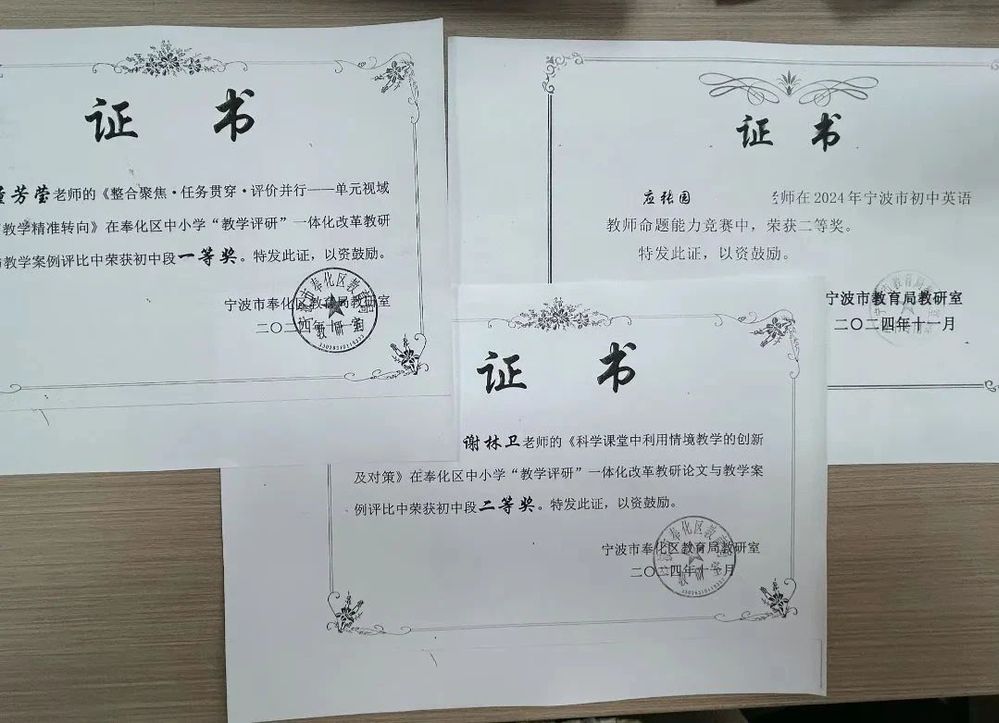 证书
芳莹老师的《整合聚焦·任务贯穿·评价并行——单元视域
教学精准转向》在奉化区中小学“教学评研”一体化改革教研
教学案例评比中荣获初中段一等奖。特发此证，以资鼓励。
宁波市奉化区教育局教研室
二〇二四年十一月
证书
应张园 老师在2024年宁波市初中英语
教师命题能力竞赛中，荣获二等奖。
特发此证，以资鼓励。
宁波市教育局教研室
二〇二四年十一月
证书
谢林卫老师的《科学课堂中利用情境教学的创新
及对策》在奉化区中小学“教学评研”一体化改革教研论文与教学案
例评比中荣获初中段二等奖。特发此证，以资鼓励。
宁波市奉化区教育局教研室
二〇二四年十一月